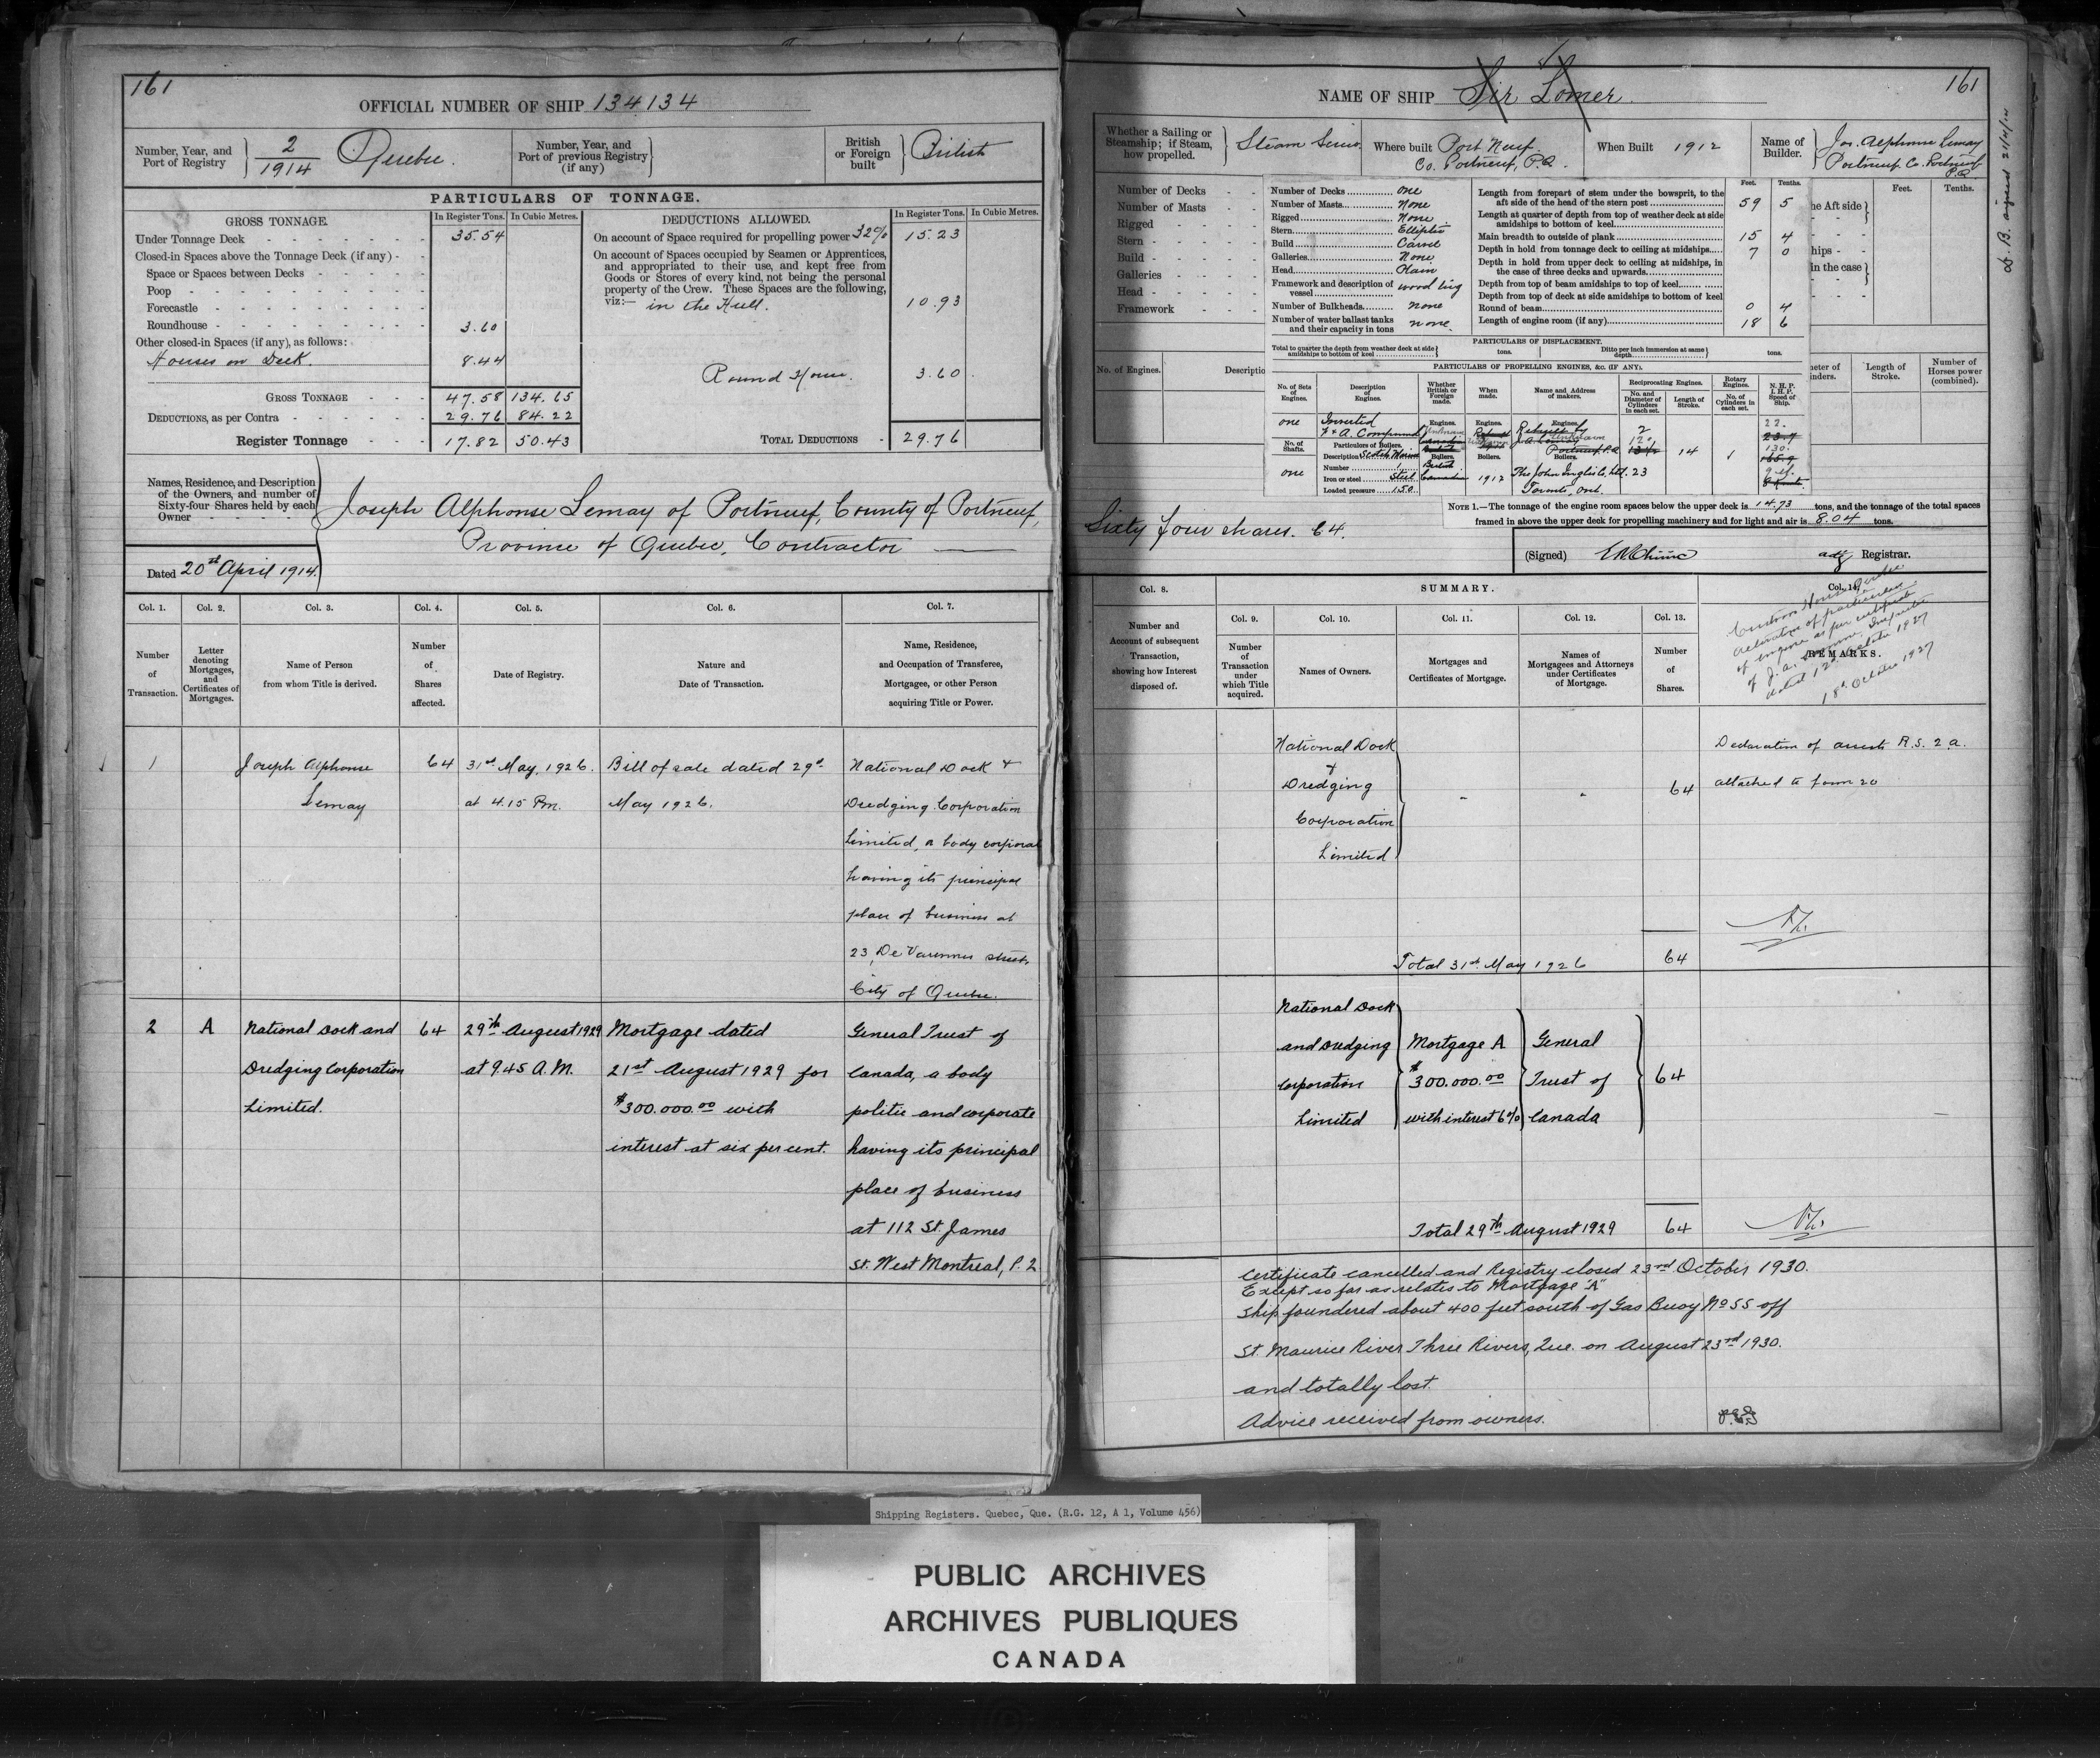 161
OFFICIAL NUMBER OF SHIP 134134
Number, Year, and Port of Registry 2/1914 Quebec.
Number, Year, and Port of previous Registry (if any)
British or Foreign built British
PARTICULARS OF TONNAGE.
GROSS TONNAGE. In Register Tons. In Cubic Metres.
Under Tonnage Deck 35.54
Closed-in Spaces above the Tonnage Deck (if any)
Space or Spaces between Decks
Poop
Forecastle
Roundhouse 3.60
Other closed-in Spaces (if any), as follows:
Houses on Deck. 8.44
GROSS TONNAGE 47.58 134.65
DEDUCTIONS, as per Contra 29.76 84.22
Register Tonnage 17.82 50.43
DEDUCTIONS ALLOWED. In Register Tons. In Cubic Metres.
On account of Space required for propelling power 32% 15.23
On account of Spaces occupied by Seamen or Apprentices,
and appropriated to their use, and kept free from
Goods or Stores of every kind, not being the personal
property of the Crew. These Spaces are the following,
viz:— in the Hull. 10.93
Round House. 3.60
TOTAL DEDUCTIONS 29.76
Names, Residence, and Description
of the Owners, and number of
Sixty-four Shares held by each
Owner
Joseph Alphonse Lemay of Portneuf, County of Portneuf,
Province of Quebec, Contractor
Dated 20st April 1914.
Col. 1. Col. 2. Col. 3. Col. 4. Col. 5. Col. 6. Col. 7.
Number of Transaction.
Letter denoting Mortgages, and Certificates of Mortgages.
Name of Person from whom Title is derived.
Number of Shares affected.
Date of Registry.
Nature and Date of Transaction.
Name, Residence, and Occupation of Transferee, Mortgagee, or other Person acquiring Title or Power.
1 Joseph Alphonse 64 31st May, 1926. Bill of sale dated 29th National Dock &
Lemay at 4.15 Pm. May 1926. Dredging Corporation
Limited, a body corporate
having its principal
place of business at
23, De Varennes street,
City of Quebec.
2 A National Dock and 64 29th August 1929 Mortgage dated General Trust of
Dredging Corporation at 9.45 A.M. 21st August 1929 for Canada, a body
Limited. $300.000.00 with politic and corporate
interest at six per cent. having its principal
place of business
at 112 St. James
St. West Montreal, P.Q
161
NAME OF SHIP Sir Lomer.
Whether a Sailing or Steamship; if Steam, how propelled. Steam Screw
Where built Port Neuf. Co. Portneuf, P.Q.
When Built 1912
Name of Builder. Jos. Alphonse Lemay Portneuf Co. Portneuf P.Q
Number of Decks
Number of Masts
Rigged
Stern
Build
Galleries
Head
Framework
No. of Engines.
Number of Decks one
Number of Masts None
Rigged None
Stern Elliptic
Build Carvel
Galleries None
Head Plain
Framework and description of vessel wood
Number of Bulkheads none
Number of water ballast tanks and their capacity in tons none.
Feet. Tenths.
Length from forepart of stem under the bowsprit, to the aft side of the head of the stern post 59 5
Length at quarter of depth from top of weather deck at side amidships to bottom of keel
Main breadth to outside of plank 15 4
Depth in hold from tonnage deck to ceiling at midships 7 0
Depth in hold from upper deck to ceiling at amidships, in the case of three decks and upwards
Depth from top of beam amidships to top of keel
Depth from top of deck at side amidships to bottom of keel
Round of beam 0 4
Length of engine room (if any) 18 6
Feet. Tenths.
he Aft side
hips
in the case
PARTICULARS OF DISPLACEMENT.
Total to quarter the depth from weather deck at side amidships to bottom of keel tons. Ditto per inch immersion at same depth tons.
PARTICULARS OF PROPELLING ENGINES, &c. (IF ANY).
No. of Sets of Engines. Description of Engines. Whether British or Foreign made. When made. Name and Address of makers. Reciprocating Engines. No. and Diameter of Cylinders in each set. Length of Stroke. Rotary Engines. No. of Cylinders in each set. N.H.P. I.H.P. Speed of Ship.
one Inverted Engines. Engines. Rebuilt by 2 22.
F & A. Compound Unknown 12. 14 1 130.
No. of Shafts. Particulars of Boilers.
Description Scotch Marine Boilers. Boilers. Portneuf P.Q
one Number 1 British
Iron or steel Steel Canadian 1912 The John Inglis Co. Ltd. 23
Loaded pressure 150 Toronto, Ont.
Length of Stroke. Number of Horses power (combined).
NOTE 1.—The tonnage of the engine room spaces below the upper deck is 14.73 tons, and the tonnage of the total spaces
framed in above the upper deck for propelling machinery and for light and air is 8.04 tons.
Sixty four shares. 64.
(Signed) Registrar.
Col. 8. SUMMARY. Col. 14.
Number and Account of subsequent Transaction, showing how Interest disposed of.
Col. 9. Col. 10. Col. 11. Col. 12. Col. 13.
Number of Transaction under which Title acquired.
Names of Owners.
Mortgages and Certificates of Mortgage.
Names of Mortgagees and Attorneys under Certificates of Mortgage.
Number of Shares.
REMARKS.
Custom House Quebec
alteration of particulars
of engine as per certificate
of J. A. Inspector
dated 12th October 1927
18th October 1927
National Dock Declaration of R.S. 2a.
& Dredging 64 attached to form 20
Corporation
Limited
Total 31st May 1926 64
National Dock
and Dredging Mortgage A General
Corporation $300.000.00 Trust of 64
Limited with interest 6% Canada
Total 29th August 1929 64
Certificate cancelled and Registry closed 23rd October 1930.
Except so far as relates to Mortgage "A"
Ship foundered about 400 feet south of Gas Buoy No 55 off
St. Maurice River Three Rivers, Que. on August 23rd 1930.
and totally lost.
Advice received from owners.
Shipping Registers. Quebec, Que. (R.G. 12, A 1, Volume 456)
PUBLIC ARCHIVES
ARCHIVES PUBLIQUES
CANADA